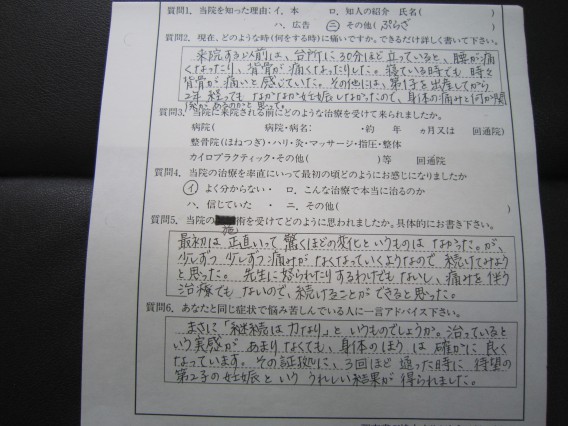 質問1. 当院を知った理由:イ. 本 ロ. 知人の紹介 氏名(
ハ. 広告 ニ. その他( ぷらざ
質問2. 現在、どのような時(何をする時)に痛いですか。できるだけ詳しく書いて下さい。
来院する以前は、台所に30分ほど立っていると、腰が痛
くなったり、背骨が痛くなったりした。寝ている時でも時々
背骨が痛いと感じていた。その他には、第1子を出産してから
2年経ってもなかなか妊娠しなかったので、身体の痛みと何か関
係があるのかと思って。
質問3. 当院に来院される前にどのような治療を受けて来られましたか。
病院( 病院・病名: ・約 年 ヵ月又は 回通院)
整骨院(ほねつぎ)・ハリ・灸・マッサージ・指圧・整体
カイロプラクティック・その他( )等 回通院
質問4. 当院の治療を率直にいって最初の頃どのようにお感じになりましたか
イ よく分からない・ ロ. こんな治療で本当に治るのか
ハ. 信じていた ・ ニ. その他(
質問5. 当院の 術を受けてどのように思われましたか。具体的にお書き下さい。
施
最初は正直いって驚くほどの変化というものはなかった。が、
少しずつ少しずつ痛みがなくなっていくようなので続けてみよう
と思った。先生に怒られたりするわけでもないし、痛みを伴う
治療でもないので、続けることができると思った。
質問6. あなたと同じ症状で悩み苦しんでいる人に一言アドバイス下さい。
まさに「継続は力なり」というものでしょうか。治っていると
いう実感があまりなくても、身体のほうは確かに良く
なっています。その証拠に、3回ほど通った時に待望の
第2子の妊娠といううれしい結果が得られました。